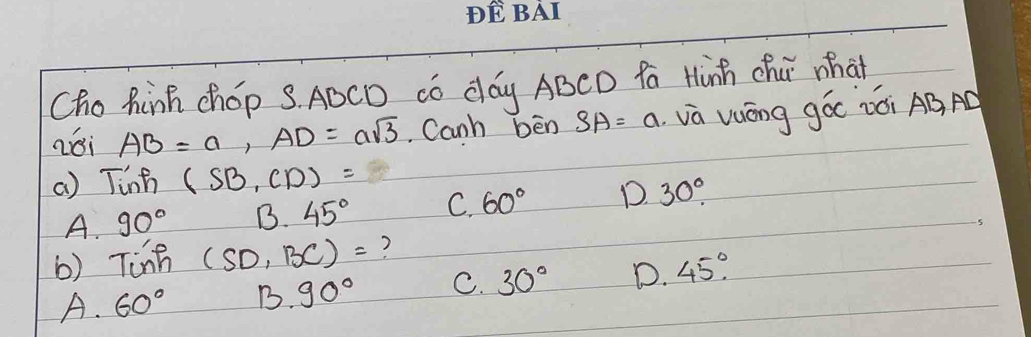 ĐỀ BÀI
Cho hình chóp S.ABCD có đáy ABCD là Hình chữ nhật
với AB = a, AD = a√3. Cạnh bên SA = a. và vuông góc với AB, AD
a) Tính (SB, CD) =
A. 90° B. 45° C. 60° D. 30°.
b) Tính (SD, BC) = ?
A. 60° B. 90° C. 30° D. 45°.